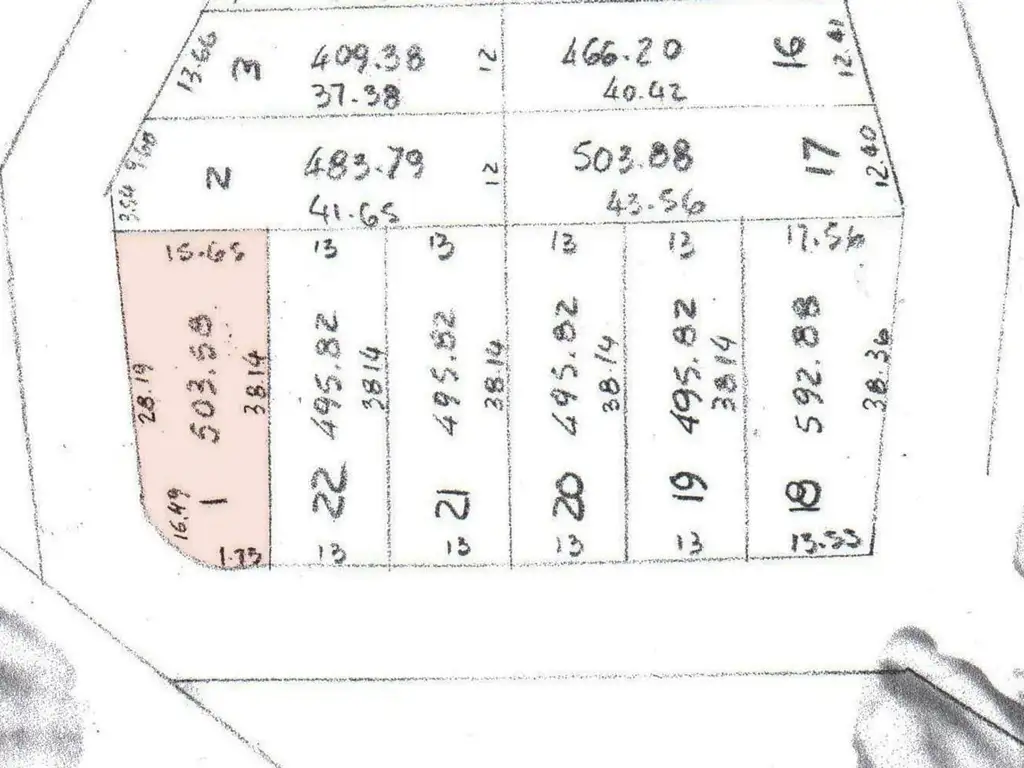 13.66
3
409.38
37.38
12
466.20
40.42
16
12.41
9.60
3.54
2
483.79
41.65
12
503.88
43.56
17
12.40
15.65
13
13
13
13
17.56
28.19
503.58
38.14
495.82
38.14
495.82
38.14
495.82
38.14
495.82
38.14
592.88
38.36
16.49
1
22
21
20
19
18
1.73
13
13
13
13
13.53